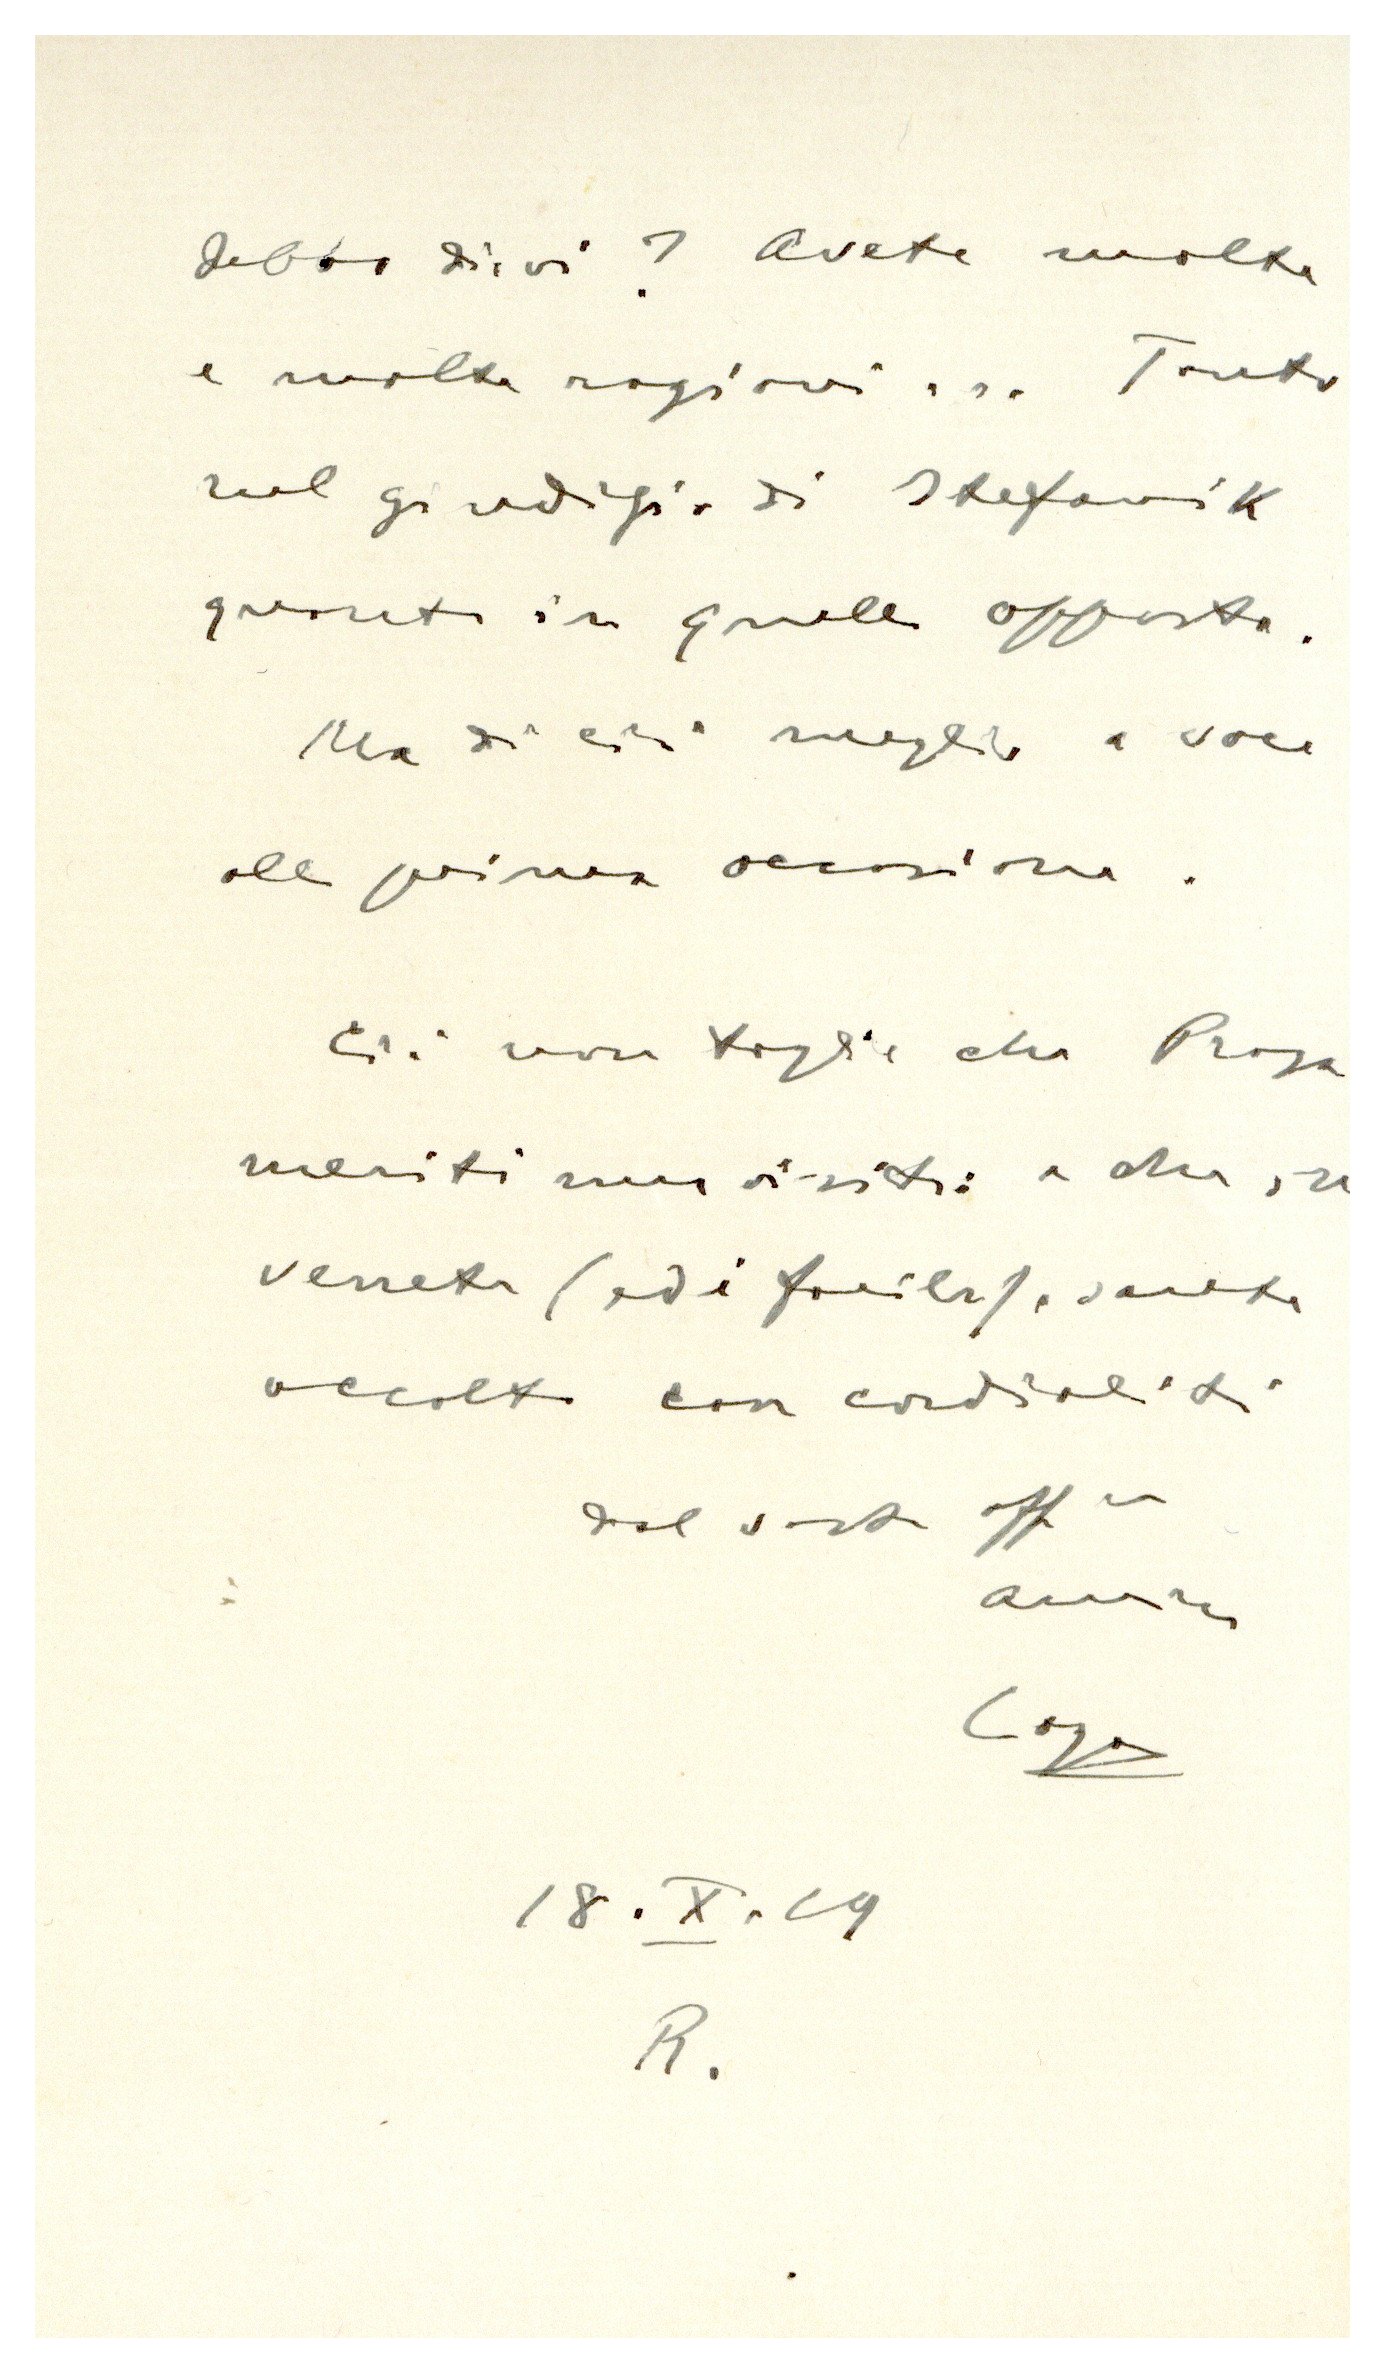 debbo dirvi? Avete molte
e molte ragioni... Tanto
nel giudizio di Stefanik
quanto in quello opposto.
Ma di ciò meglio a voce
alla prima occasione.
Ciò non toglie che Praga
meriti una visita: e che, se
verrete (ed è facile), sarete
accolto con cordialità
dal vostro aff mo
amico
18.X.19
R.